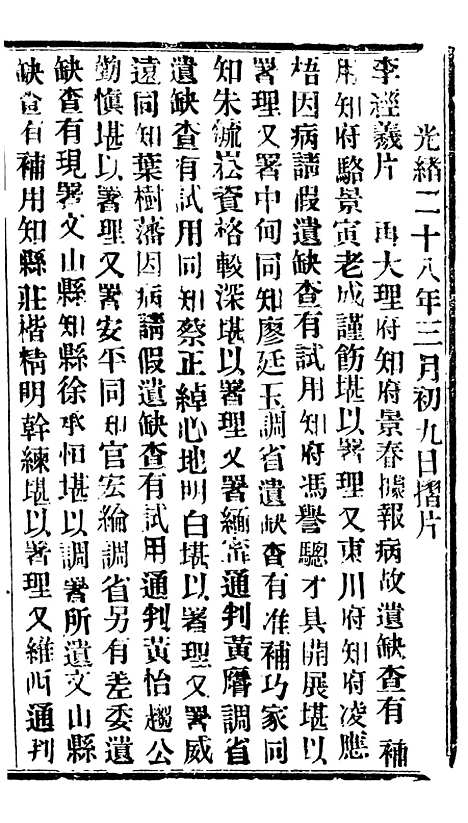 光緖二十八年三月初九日摺片
李經羲片　再大理府知府景春據報病故遺缺查有補
用知府駱景寅老成謹飭堪以署理又東川府知府凌應
梧因病請假遺缺查有試用知府馮譽驄才具開展堪以
署理又署中甸同知廖廷玉調省遺缺查有准補巧家同
知朱毓崧資格較深堪以署理又署緬甯通判黃膺調省
遺缺查有試用同知蔡正綽心地明白堪以署理又署威
遠同知葉樹藩因病請假遺缺查有試用通判黃怡趨公
勤愼堪以署理又署安平同知官宏綸調省另有差委遺
缺查有現署文山縣知縣徐承恒堪以調署所遺文山縣
缺查有補用知縣莊楷精明幹練堪以署理又維西通判